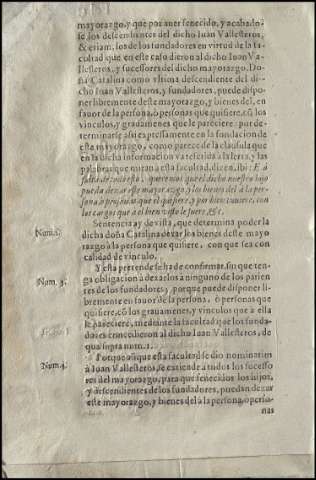 mayorazgo, y que por auer fenecido, y acabado-
se los descendientes del dicho Iuan Vallesteros,
& etiam, los de los fundadores en virtud de la fa-
cultad que en este caso dieron al dicho Iuan Va-
llesteros, y sucessores del dicho mayorazgo. Do-
ña Catalina como vltima descendiente del di-
cho Iuan Vallesteros, y fundadores, puede dispo-
ner libremente deste mayorazgo, y bienes del, en
fauor de la persona, ò personas que quisiere, cõ los
vinculos, y grauamenes que le pareciere por de-
terminarse assi expressamente en la fundacion de
este mayorazgo, como parece de la clausula que
en la dicha informacion va referida à la letra, y las
palabras que miran a esta facultad, dicen, ibi: E a
falta de todo esto, queremos que el dicho nuestro hijo
pueda dexar este mayorazgo, y los bienes del à la per-
sona, ò personas que el quisiere, y por bien tuuiere, con
los cargos que a el bien visto le fuere, &c.
Num. 2. Sentencia ay de vista, que determina poder la
dicha doña Catalina dexar los bienes deste mayo-
razgo à la persona que quisiere, con que sea con
calidad de vinculo.
Num. 3. Y esta pretende se ha de confirmar, sin que tenga
obligacion à dexarlos à ninguno de los parien
tes de los fundadores, porque puede disponer li-
bremente en fauor de la persona, ò personas que
quisiere, cõ los grauamenes, y vinculos que a ella
le pareciere, mediante la facultad que los funda-
dores concedieron al dicho Iuan Vallesteros, de
qua supra num. 1.
Num. 4. Porque aũque esta facultad se dio nominatim
à Iuan Vallesteros, se estiende à todos los sucesso
res del mayorazgo, para que fenecidos los hijos,
y descendientes de los fundadores, puedan dexar
este mayorazgo, y bienes del à la persona, ò perso-
nas